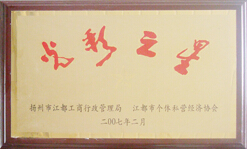 光彩之星
扬州市江都工商行政管理局 江都市个体私营经济协会
二〇〇七年二月